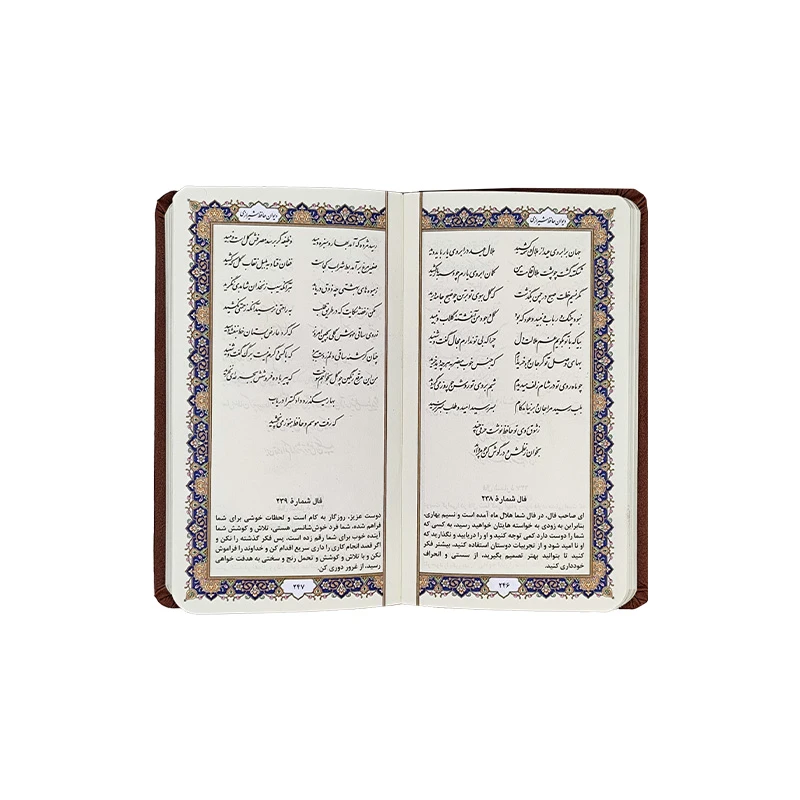 دیوان حافظ شیرازی
جهان بر ابروی عید از هلال وسمه کشید هلال عید در ابروی یار باید دید
شکسته گشت چو پشت هلال قامت من کمان ابروی یارم چو وسمه باز کشید
مگر نسیم خطت صبح در چمن بگذشت که گل به بوی تو بر تن چو صبح جامه درید
نبود چنگ و رباب و نبید و عود که بود گل وجود من آغشته گلاب و نبید
بیا که با تو بگویم غم ملالت دل چرا که بی تو ندارم مجال گفت و شنید
بهای وصل تو گر جان بود خریدارم که جنس خوب مبصر به هر چه دید خرید
چو ماه روی تو در شام زلف می‌دیدم شبم به روی تو روشن چو روز می‌گردید
به لب رسید مرا جان و برنیامد کام به سر رسید امید و طلب به سر نرسید
ز شوق روی تو حافظ نوشت حرفی چند
بخوان ز نظمش و در گوش کن چو مروارید
فال شمارۀ ۲۳۸
ای صاحب فال، در فال شما هلال ماه آمده است و نسیم بهاری،
بنابراین به زودی به خواسته هایتان خواهید رسید، به کسی که
شما را دوست دارد کمی توجه کنید و او را دریابید و نگذارید که
او نا امید شود و از تجربیات دوستان استفاده کنید، بیشتر فکر
کنید تا بتوانید بهتر تصمیم بگیرید، از سستی و انحراف
خودداری کنید.
۲۴۶
دیوان حافظ شیرازی
رسید مژده که آمد بهار و سبزه دمید وظیفه گر برسد مصرفش گل است و نبید
صفیر مرغ برآمد بط شراب کجاست فغان فتاد به بلبل نقاب گل که کشید
ز میوه‌های بهشتی چه ذوق دریابد هر آنکه سیب زنخدان شاهدی نگزید
مکن ز غصه شکایت که در طریق طلب به راحتی نرسید آنکه زحمتی نکشید
ز روی ساقی مهوش گلی بچین امروز که گرد عارض بستان خط بنفشه دمید
چنان کرشمه ساقی دلم ز دست ببرد که با کسی دگرم نیست برگ گفت و شنید
من این مرقع رنگین چو گل بخواهم سوخت که پیر باده فروشش به جرعه‌ای نخرید
بهار میگذرد دادگسترا دریاب
که رفت موسم و حافظ هنوز می نچشید
فال شمارۀ ۲۳۹
دوست عزیز، روزگار به کام است و لحظات خوشی برای شما
فراهم شده، شما فرد خوش‌شانسی هستی، تلاش و کوشش شما
آینده خوب برای شما رقم زده است، پس فکر گذشته را نکن و
اگر قصد انجام کاری را داری سریع اقدام کن و خداوند را فراموش
نکن و با تلاش و کوشش و تحمل رنج و سختی به هدفت خواهی
رسید، از غرور دوری کن.
۲۴۷